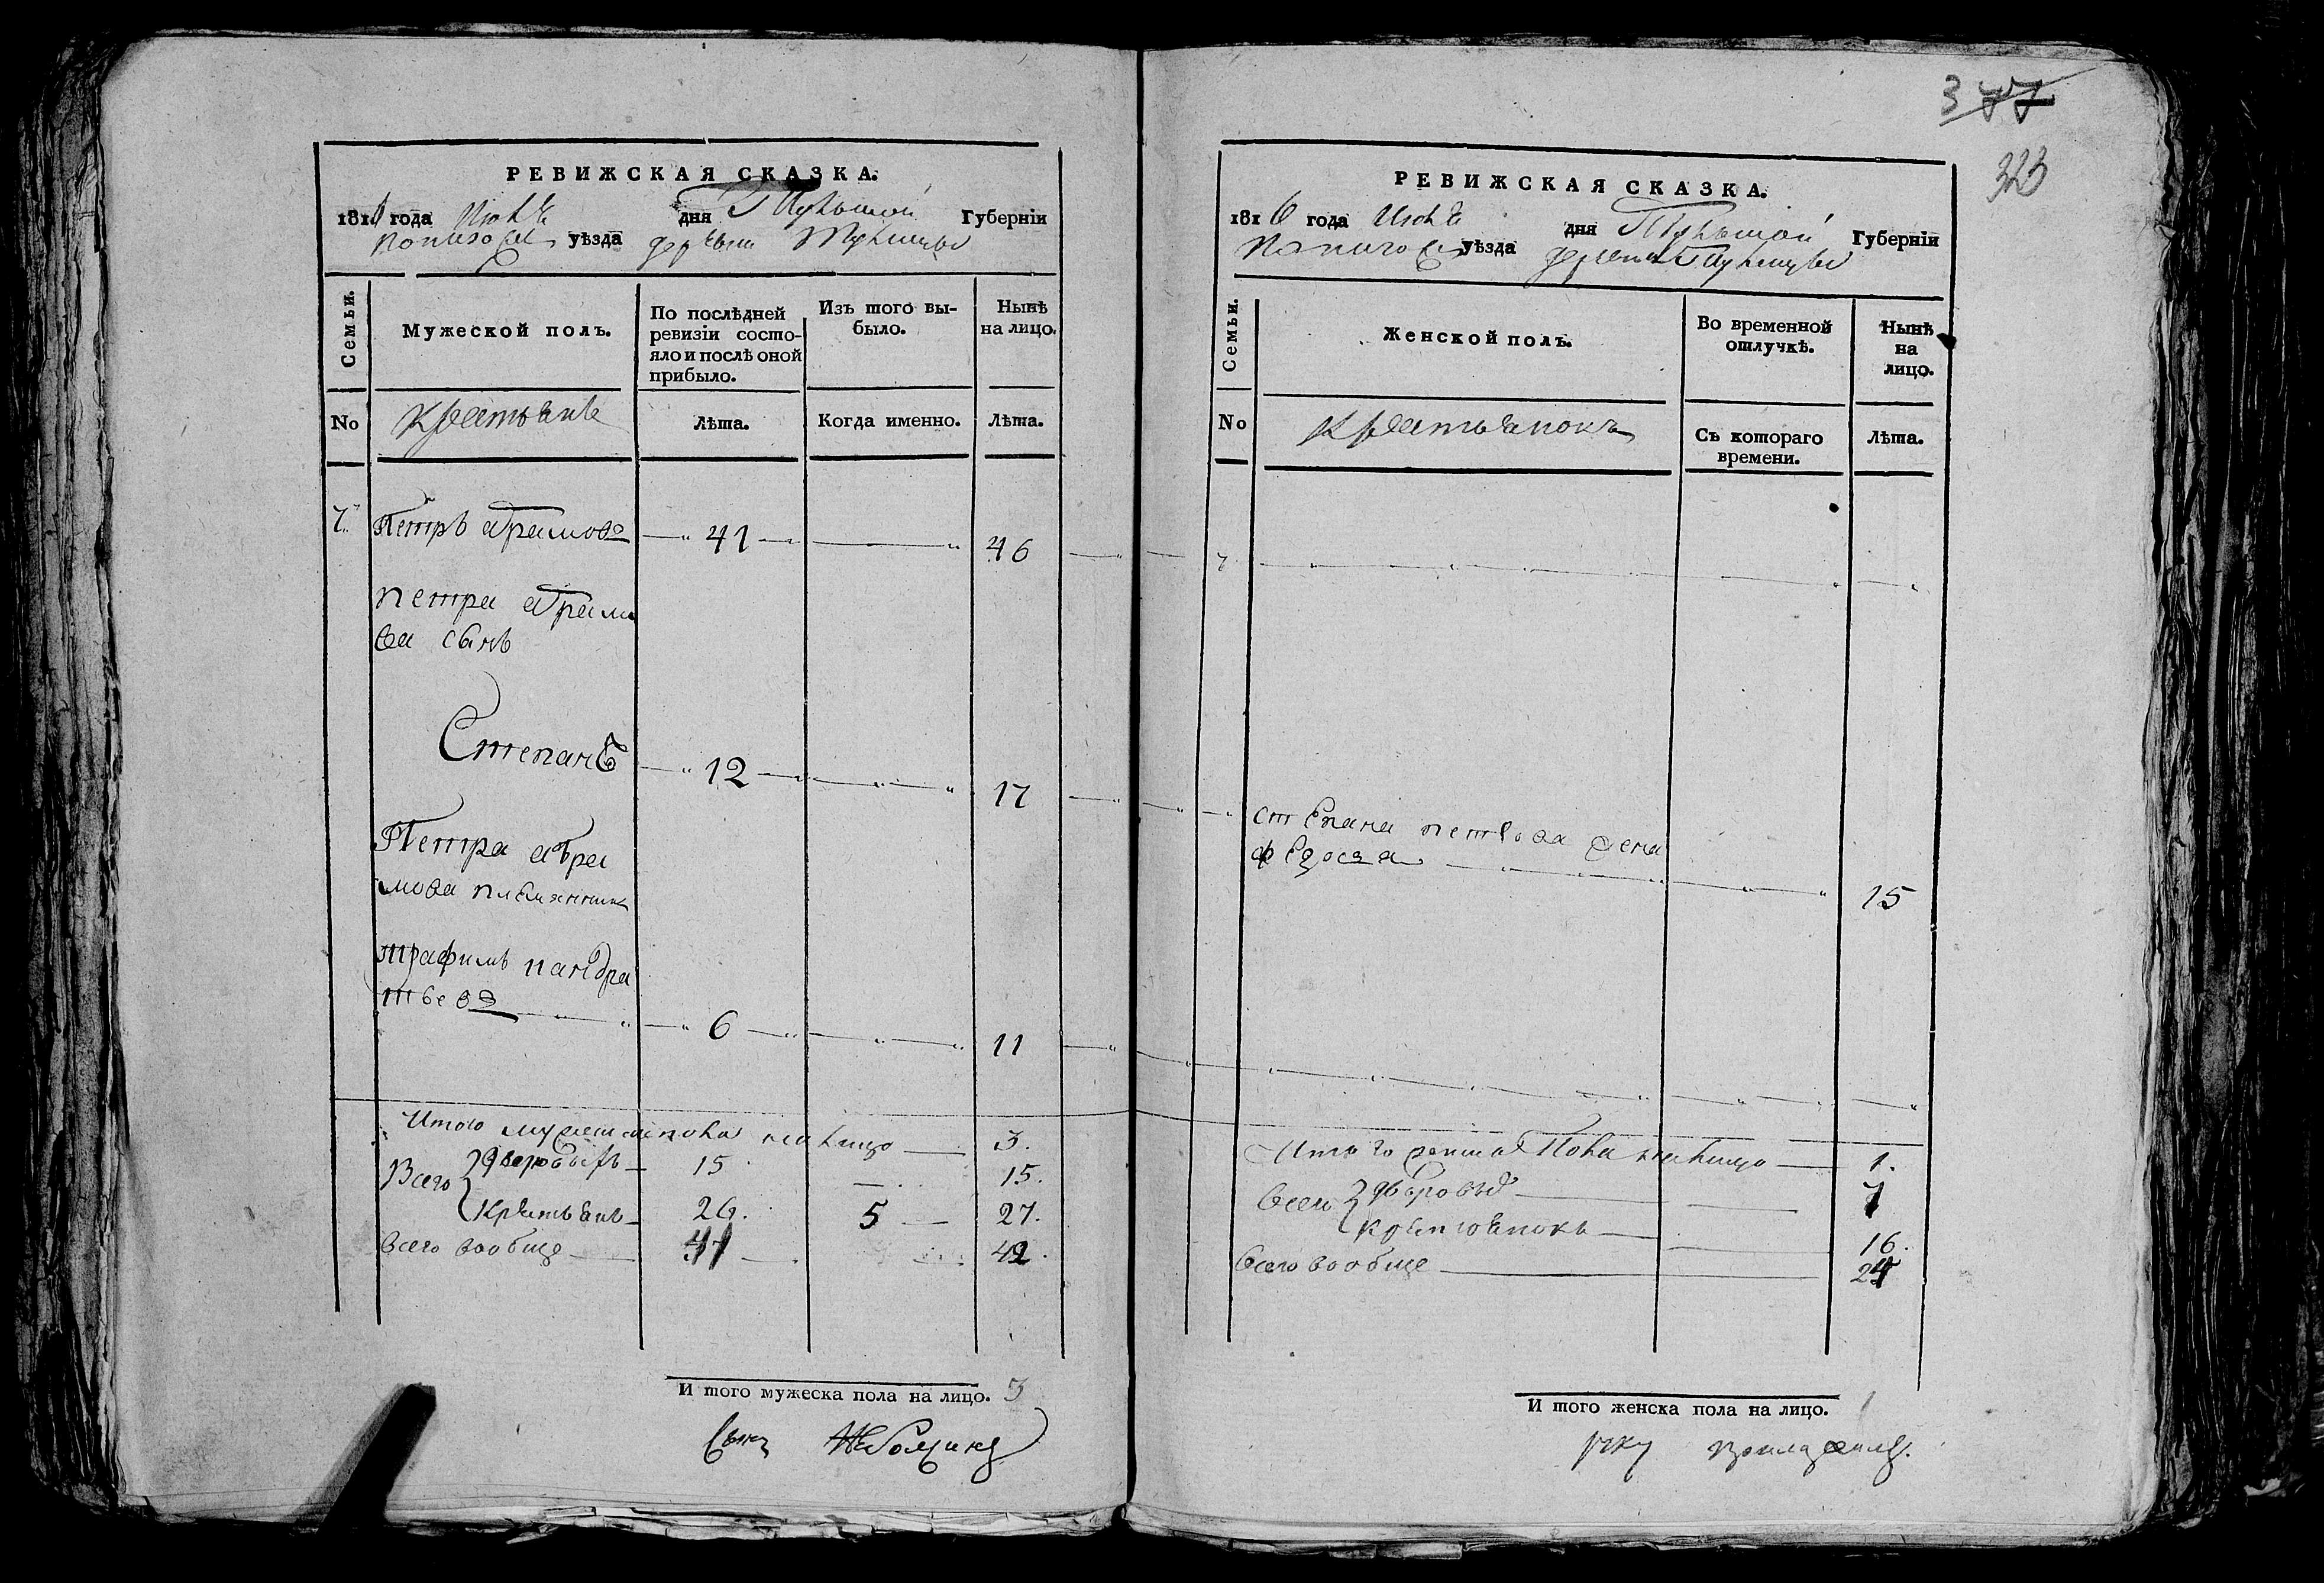 377
323
РЕВИЖСКАЯ СКАЗКА.
1816 года Июля дня Тульской Губерніи
уѣзда деревни
Семьи.
Мужеской полъ.
По послѣдней ревизіи состо-
яло и послѣ оной прибыло.
Изъ того вы-
было.
Нынѣ на лицо.
No
крестьяне
Лѣта.
Когда именно.
Лѣта.
7. Петръ абрамовъ 41 46
петра абрамо
ва сынъ
Степанъ 12 17
Петра абра
мова племянникъ
трафимъ пандра
тьевъ 6 11
Итого мужеска пола на лицо 3.
Всего дворовыхъ 15 15.
крестьянъ 26. 5 27.
всего вообще 41 42.
И того мужеска пола на лицо. 3
РЕВИЖСКАЯ СКАЗКА.
1816 года Июля дня Тульской Губерніи
уѣзда
Семьи.
Женской полъ.
Во временной
отлучкѣ.
Нынѣ
на
лицо.
No
крестьянокъ
Съ котораго
времени.
Лѣта.
7
степана петрова жена
федосья 15
Итого женска пола на лицо 1.
всего дворовыхъ 7
крестьянокъ 16.
всего вообще 24
И того женска пола на лицо. 1
руку приложилъ.